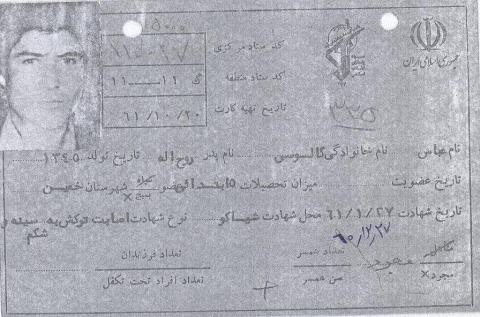 جمهوری اسلامی ایران
کد ستاد مرکزی
کد ستاد منطقه گ ۱۱ــ۱۱
تاریخ تهیه کارت ۶۱/۱۰/۲۰
۳۲۵
نام عباس نام خانوادگی نام پدر روح اله تاریخ تولد ۱۳۴۵
تاریخ عضویت میزان تحصیلات ۵ ابتدائی عضو سپاه بسیج× شهرستان خمین
تاریخ شهادت ۶۱/۱/۲۷ محل شهادت نوع شهادت اصابت ترکش به سینه و شکم
متاهل تعداد همسر تعداد فرزندان
مجرد× مجرد سن همسر تعداد افراد تحت تکفل